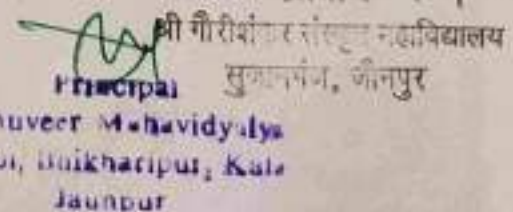 श्री गौरीशंकर संस्कृत महाविद्यालय
सुजानगंज, जौनपुर
Principal
uveer Mahavidyalya
Kala
Jaunpur